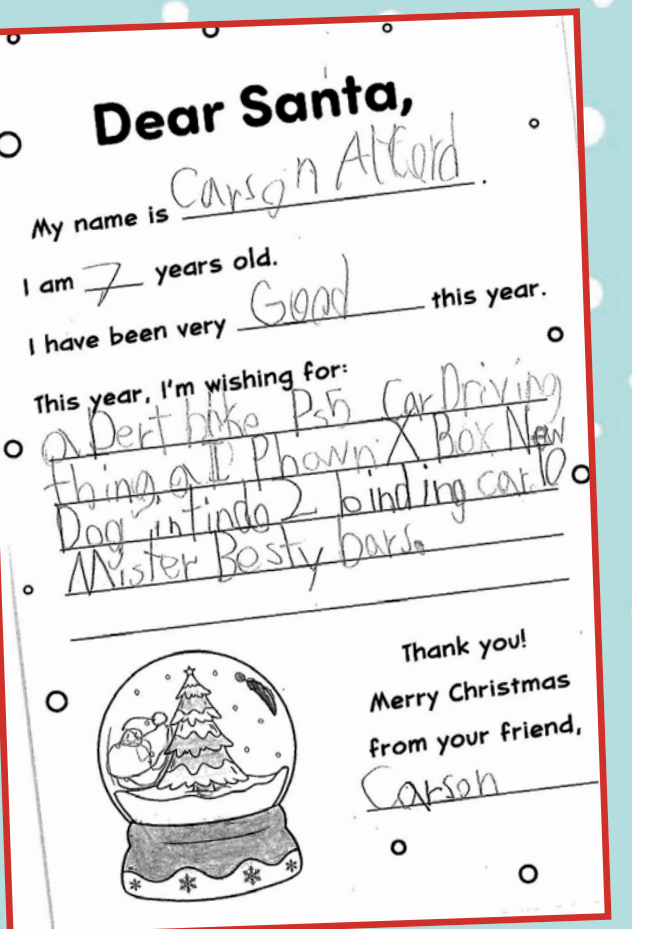 Dear Santa,
My name is Carson Alford.
I am 7 years old.
I have been very Good this year.
This year, I'm wishing for:
a Dert bike Ps5 Car Driving
thing, a I Phown X Box New
Dog, intindo 2 binding car. 10
Mister Besty bars.
Thank you!
Merry Christmas
from your friend,
Carson